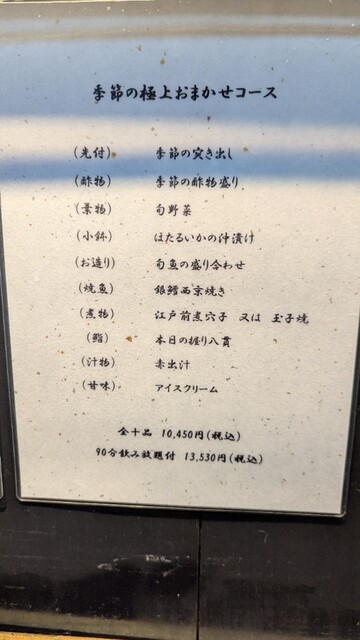 季節の極上おまかせコース
(先付) 季節の突き出し
(酢物) 季節の酢物盛り
(景物) 旬野菜
(小鉢) ほたるいかの沖漬け
(お造り) 旬魚の盛り合わせ
(焼魚) 銀鱈西京焼き
(煮物) 江戸前煮穴子 又は 玉子焼
(鮨) 本日の握り八貫
(汁物) 赤出汁
(甘味) アイスクリーム
全十品 10,450円(税込)
90分飲み放題付 13,530円(税込)